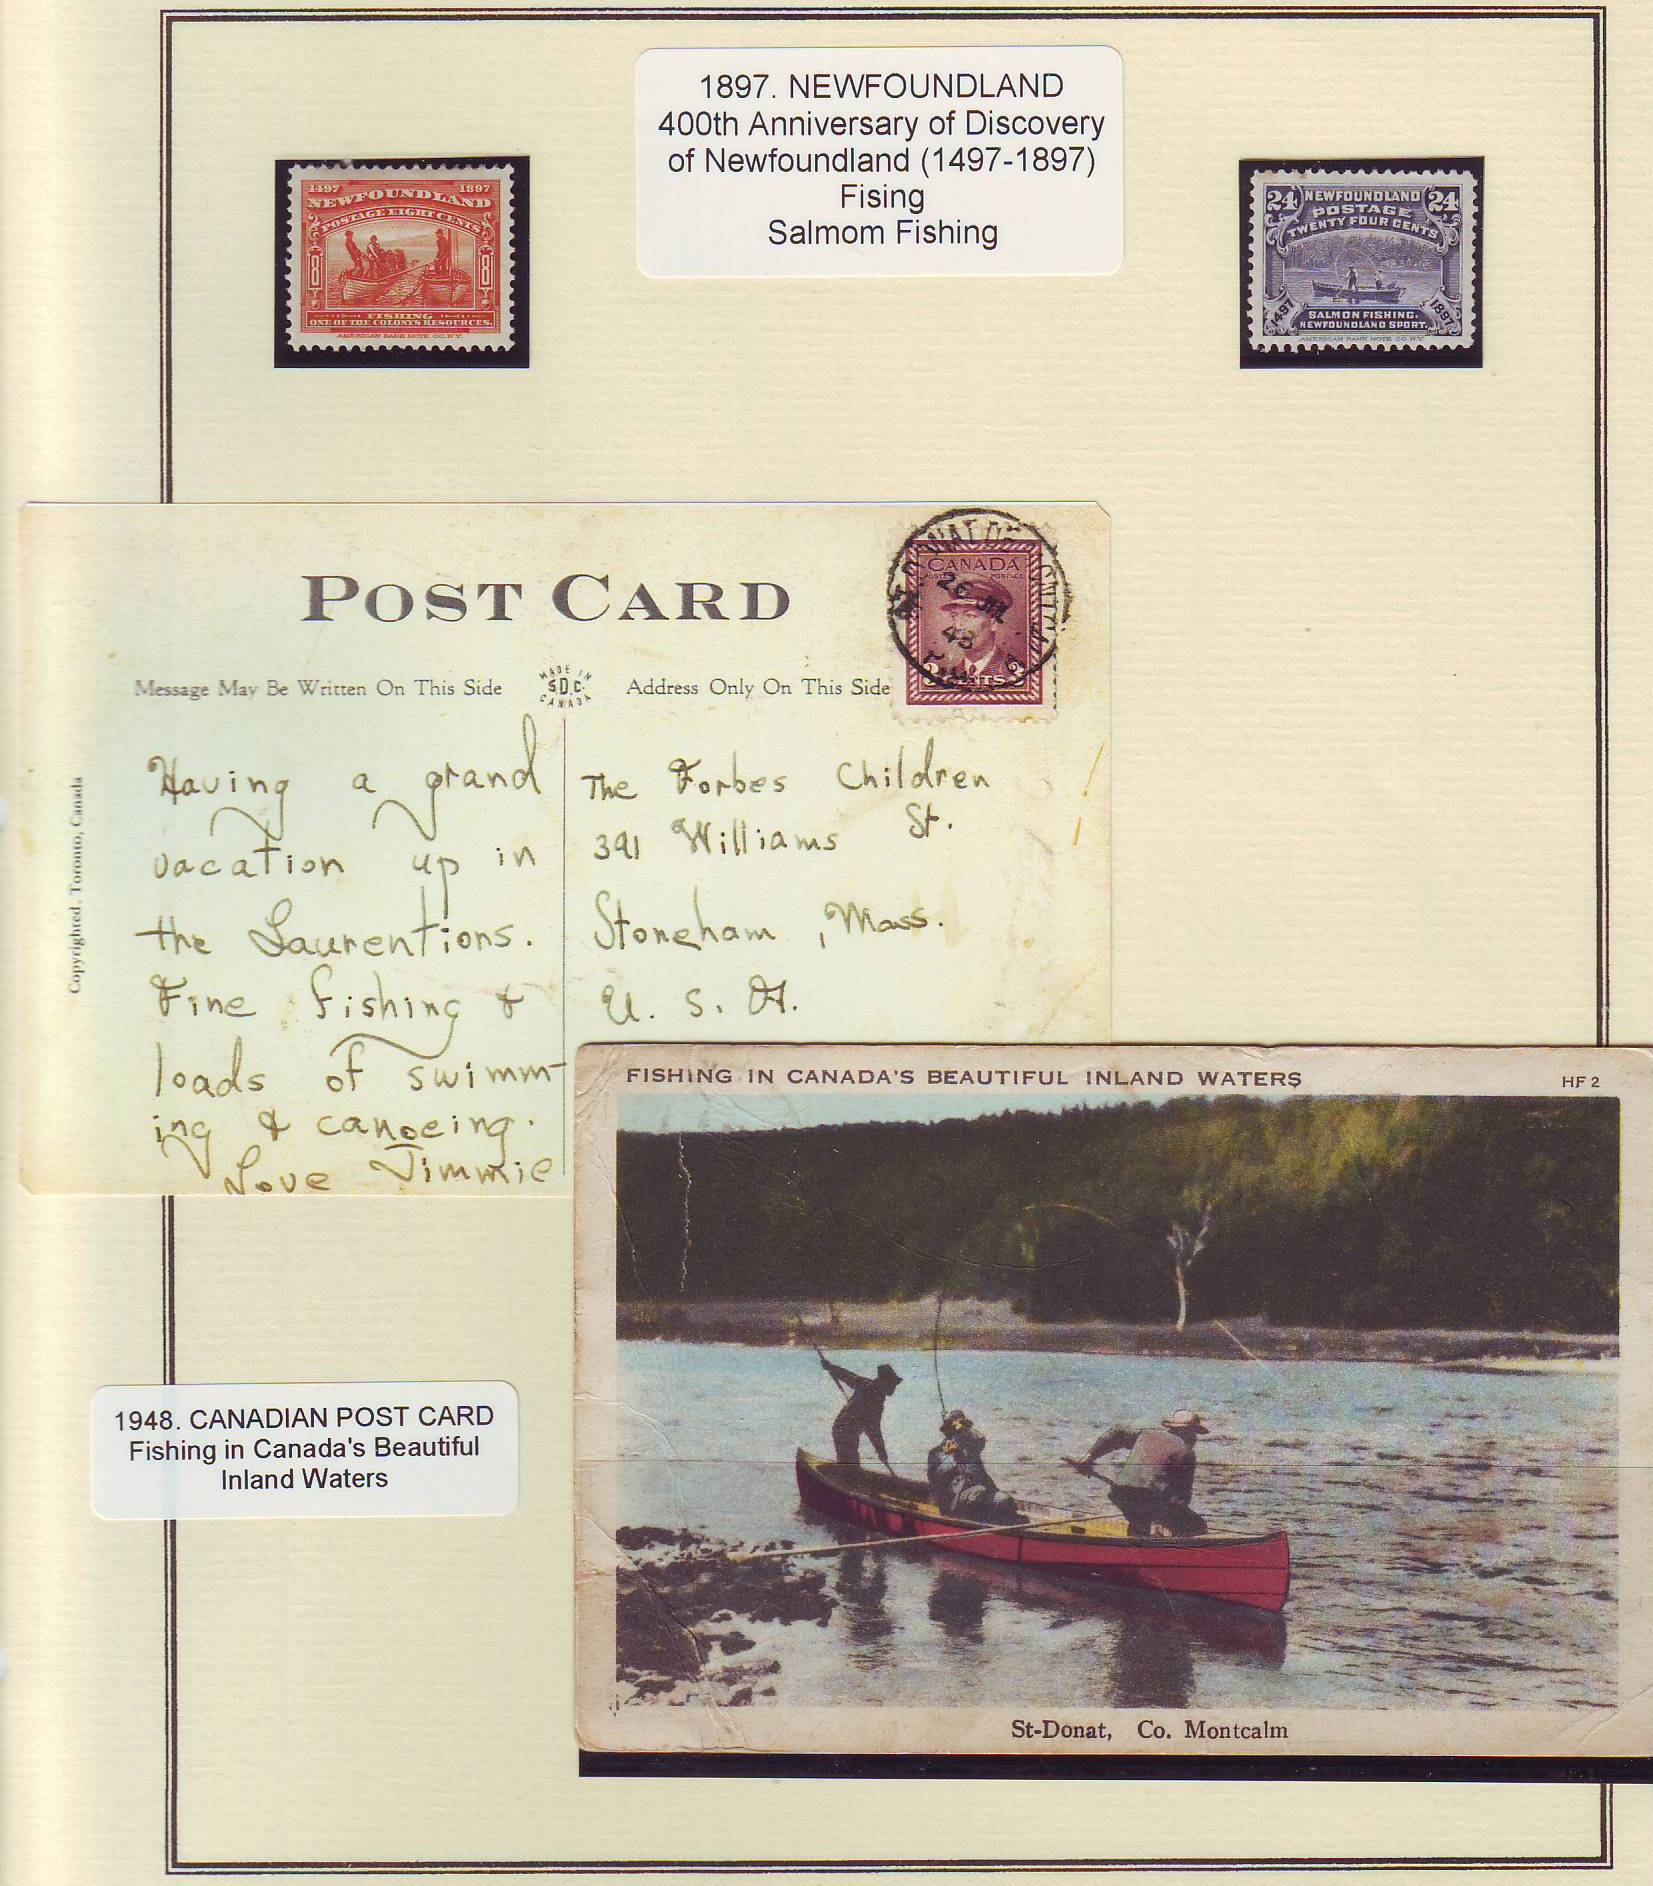 1897. NEWFOUNDLAND
400th Anniversary of Discovery
of Newfoundland (1497-1897)
Fising
Salmom Fishing
1497 1897
NEWFOUNDLAND
POSTAGE EIGHT CENTS
8 8
FISHING
ONE OF THE COLONY'S RESOURCES.
AMERICAN BANK NOTE CO. N.Y.
24 NEWFOUNDLAND 24
POSTAGE
TWENTY FOUR CENTS
1497 1897
SALMON FISHING.
NEWFOUNDLAND SPORT.
AMERICAN BANK NOTE CO. N.Y.
POST CARD
CANADA
POSTES POSTAGE
26 JL
48
Message May Be Written On This Side
MADE IN
S.D.C.
CANADA
Address Only On This Side
Copyrighted. Toronto, Canada
Having a grand
vacation up in
the Laurentions.
Fine fishing &
loads of swimm-
ing & canoeing.
Love Jimmie
The Forbes Children
391 Williams St.
Stoneham, Mass.
U. S. A.
FISHING IN CANADA'S BEAUTIFUL INLAND WATERS HF 2
St-Donat, Co. Montcalm
1948. CANADIAN POST CARD
Fishing in Canada's Beautiful
Inland Waters